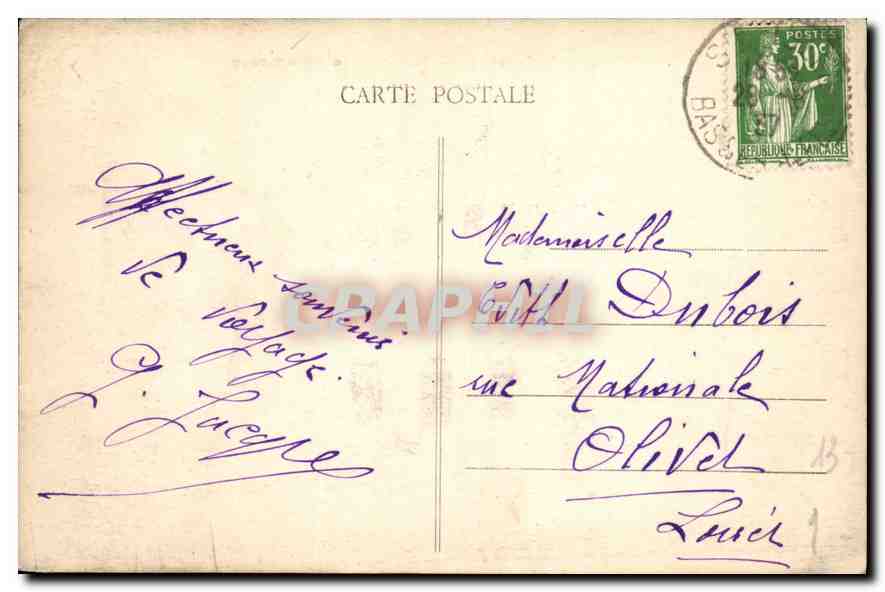 CARTE POSTALE
POSTES
30c
RÉPUBLIQUE FRANÇAISE
28
37
BAS
Affectueux souvenir
de voyage.
G. Jacque
Mademoiselle
Edith Dubois
rue Nationale
Olivet
Loiret
13
1
CRAPHIL